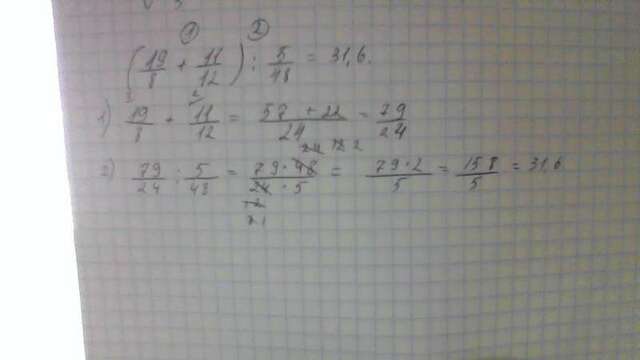 ① ②
(19/8 + 11/12) : 5/48 = 31,6.
1) 19/8 + 11/12 = 57 + 22/24 = 79/24
2) 79/24 : 5/48 = 79·48/24·5 = 79·2/5 = 158/5 = 31,6